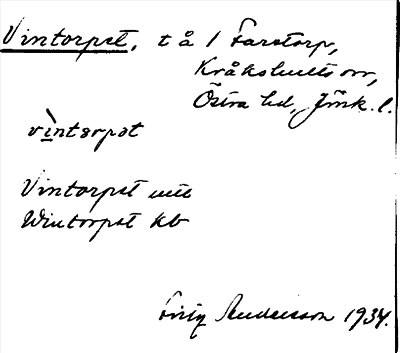 Vintorpet, t å 1 Farstorp,
Kråkshults sn,
Östra hd, Jönk. l.
vìntərpət
Vintorpet
Wintorpet kb
Andersson 1934.